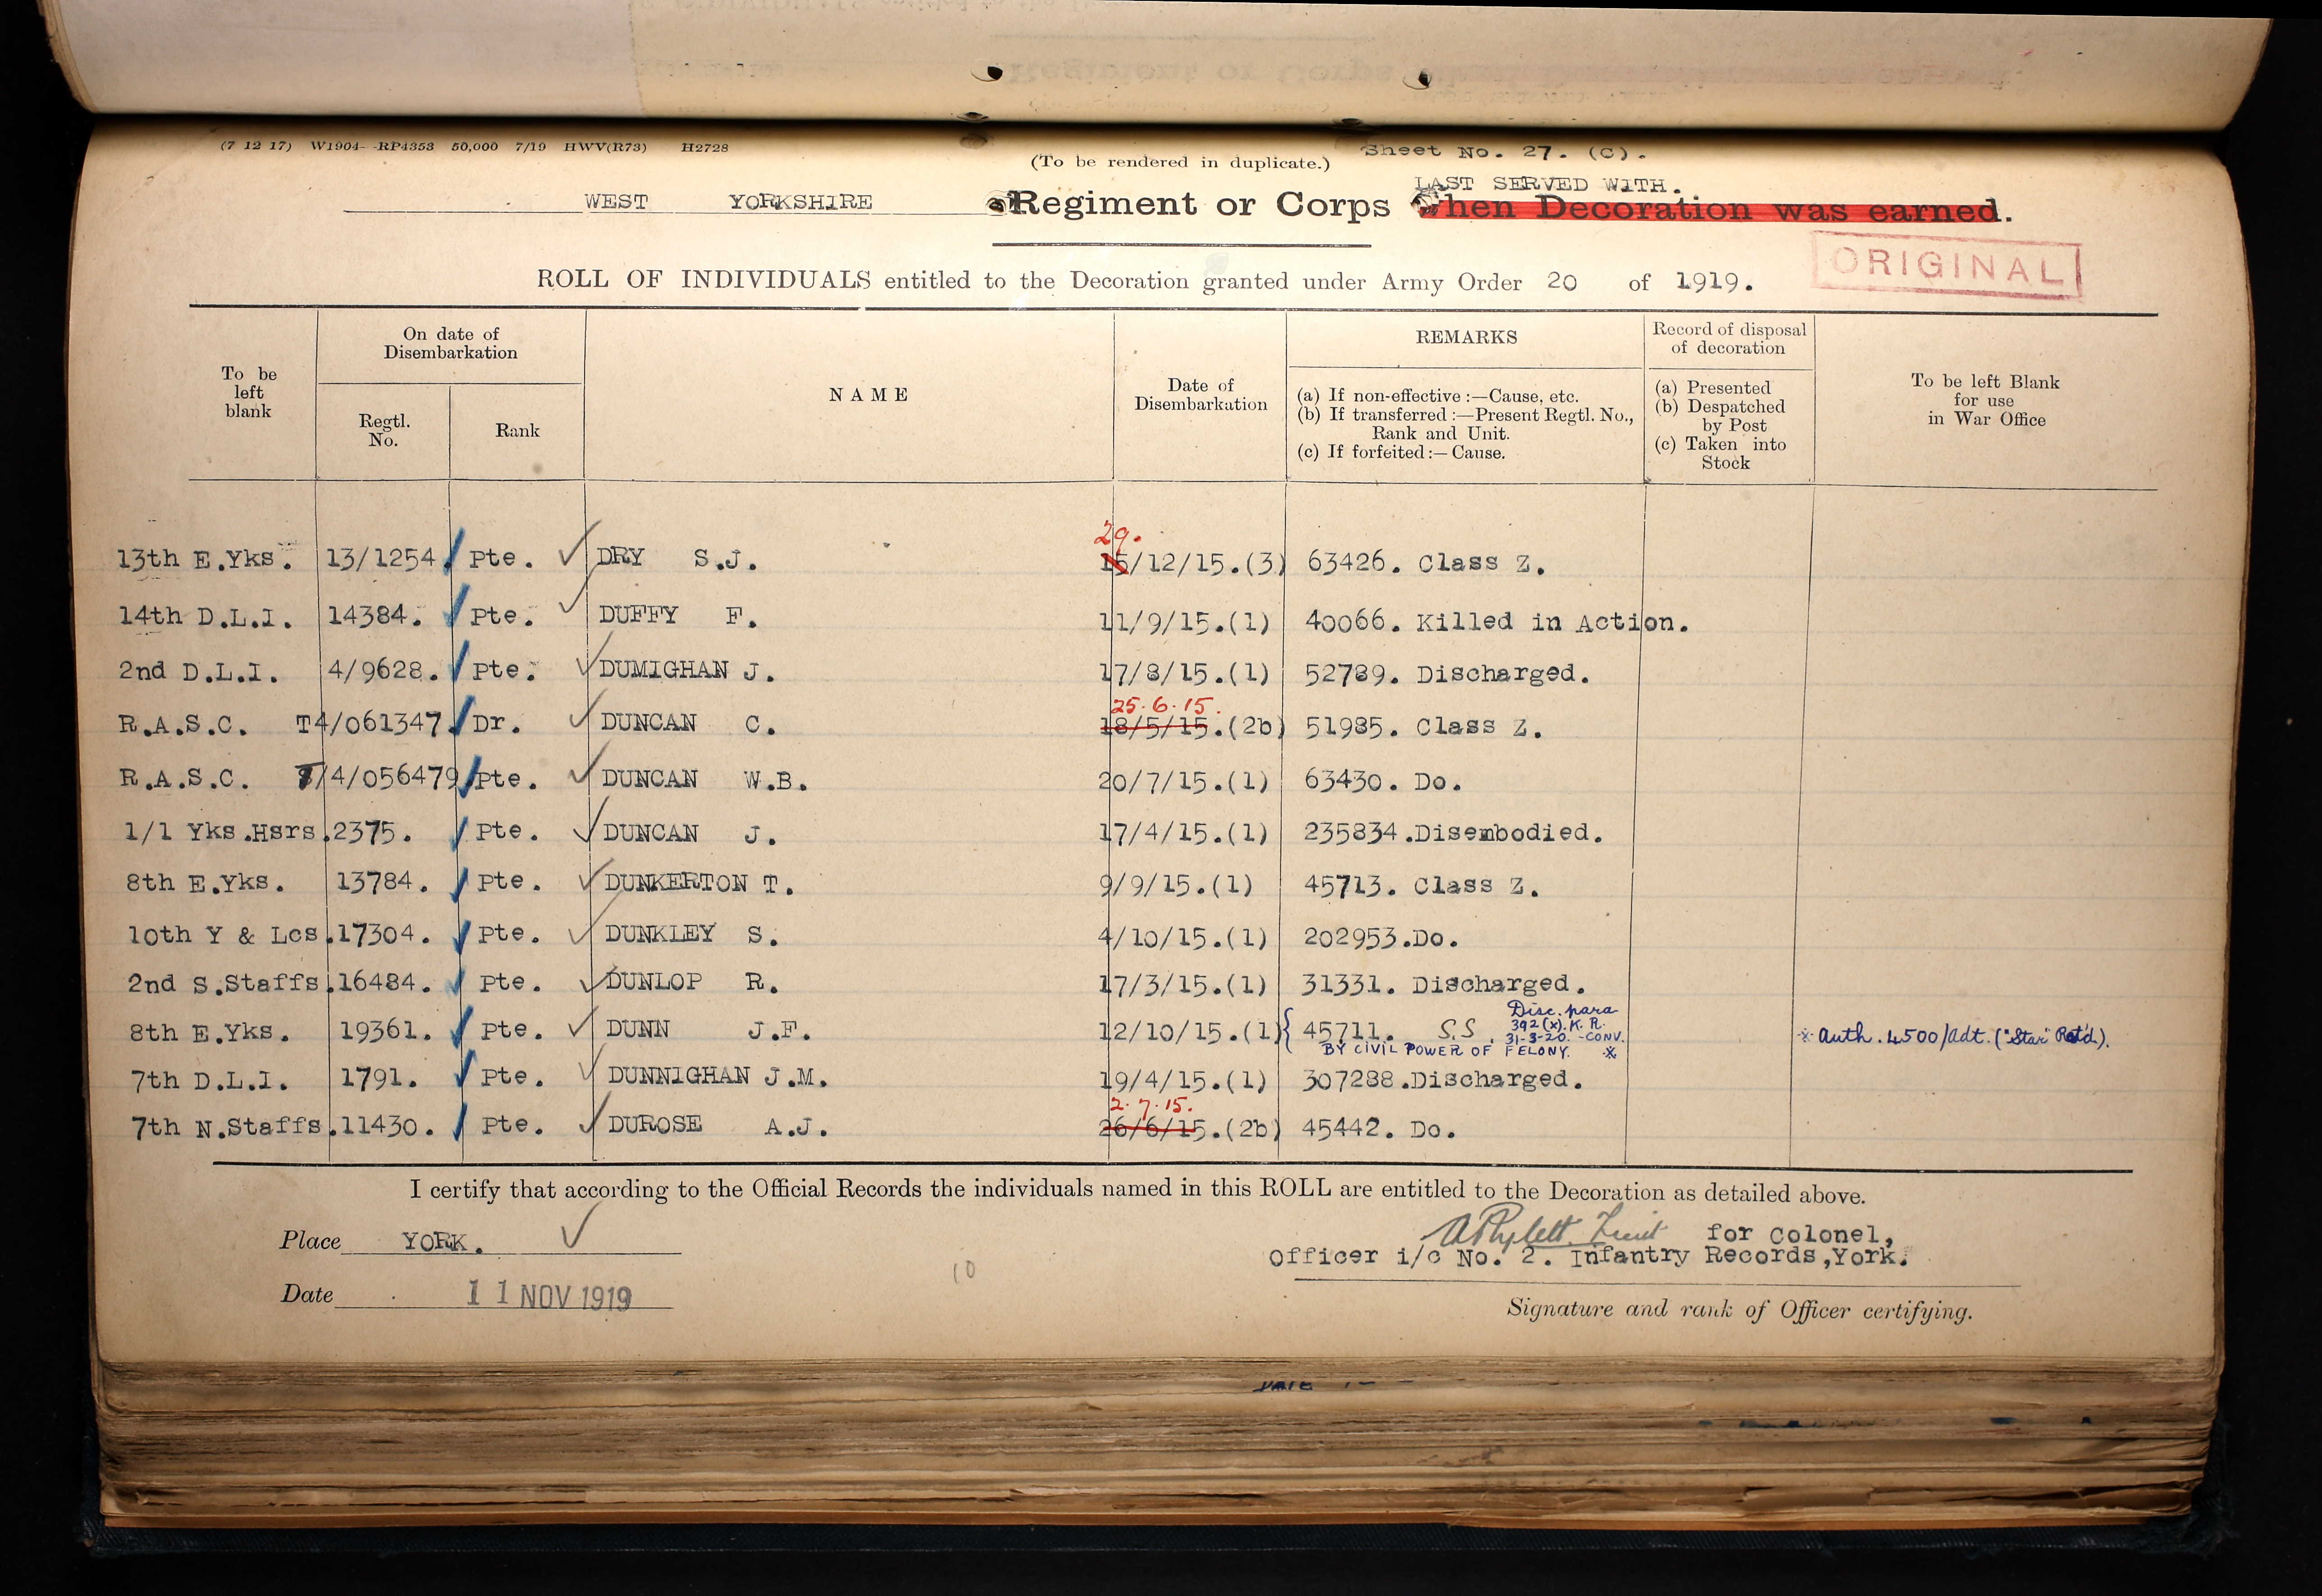 (7 12 17) W1904--RP4353 50,000 7/19 HWV(R73) H2728
(To be rendered in duplicate.) Sheet No. 27. (C).
LAST SERVED WITH.
WEST YORKSHIRE Regiment or Corps when Decoration was earned.
ORIGINAL
ROLL OF INDIVIDUALS entitled to the Decoration granted under Army Order 20 of 1919.
To be left blank
On date of Disembarkation
Regtl. No.
Rank
NAME
Date of Disembarkation
REMARKS
(a) If non-effective :—Cause, etc.
(b) If transferred :—Present Regtl. No., Rank and Unit.
(c) If forfeited :—Cause.
Record of disposal of decoration
(a) Presented
(b) Despatched by Post
(c) Taken into Stock
To be left Blank for use in War Office
29.
13th E.Yks. 13/1254 Pte. DRY S.J. 15/12/15.(3) 63426. Class Z.
14th D.L.I. 14384. Pte. DUFFY F. 11/9/15.(1) 40066. Killed in Action.
2nd D.L.I. 4/9628. Pte. DUMIGHAN J. 17/8/15.(1) 52789. Discharged.
25.6.15.
R.A.S.C. T4/061347. Dr. DUNCAN C. 18/5/15.(2b) 51985. Class Z.
R.A.S.C. T/4/056479 Pte. DUNCAN W.B. 20/7/15.(1) 63430. Do.
1/1 Yks.Hsrs. 2375. Pte. DUNCAN J. 17/4/15.(1) 235834.Disembodied.
8th E.Yks. 13784. Pte. DUNKERTON T. 9/9/15.(1) 45713. Class Z.
10th Y & Lcs. 17304. Pte. DUNKLEY S. 4/10/15.(1) 202953.Do.
2nd S.Staffs. 16484. Pte. DUNLOP R. 17/3/15.(1) 31331. Discharged.
8th E.Yks. 19361. Pte. DUNN J.F. 12/10/15.(1) 45711. S.S. Disc. para 392(x). K.R. 31-3-20. -CONV. BY CIVIL POWER OF FELONY. ※ ※ Auth. 4500/Adt. ("Star" Retd.).
7th D.L.I. 1791. Pte. DUNNIGHAN J.M. 19/4/15.(1) 307288.Discharged.
2.7.15.
7th N.Staffs. 11430. Pte. DUROSE A.J. 26/6/15.(2b) 45442. Do.
I certify that according to the Official Records the individuals named in this ROLL are entitled to the Decoration as detailed above.
Place YORK.
for Colonel,
Officer i/c No. 2. Infantry Records,York.
10
Date 11 NOV 1919
Signature and rank of Officer certifying.